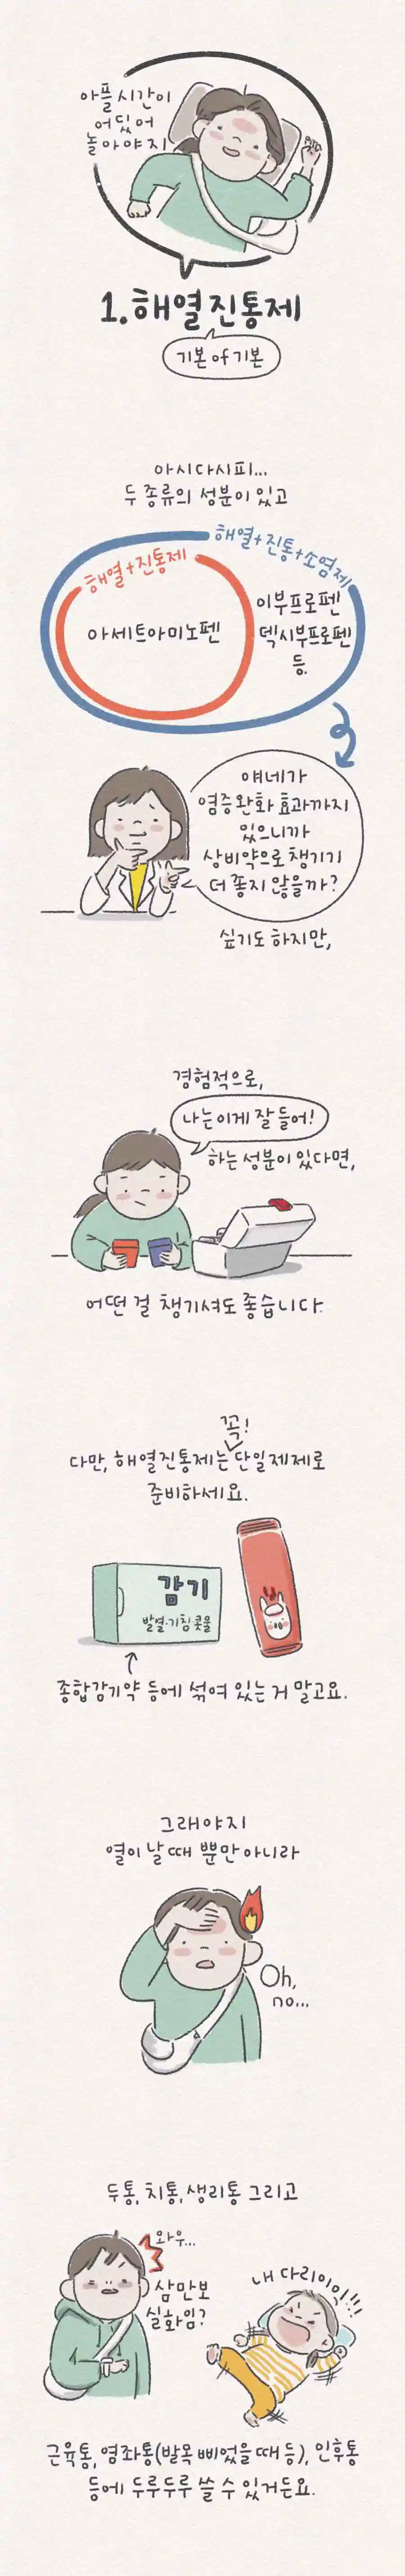 아플 시간이
어딨어
놀아야지
1. 해열진통제
기본 of 기본
아시다시피...
두 종류의 성분이 있고
해열+진통+소염제
해열+진통제
아세트아미노펜
이부프로펜
덱시부프로펜
등.
얘네가
염증완화 효과까지
있으니까
상비약으로 챙기기
더 좋지 않을까?
싶기도 하지만,
경험적으로,
나는 이게 잘 들어!
하는 성분이 있다면,
어떤 걸 챙기셔도 좋습니다.
꼭!
다만, 해열진통제는 단일제제로
준비하세요.
감기
발열·기침·콧물
종합감기약 등에 섞여 있는 거 말고요.
그래야지
열이 날 때 뿐만 아니라
Oh,
no...
두통, 치통, 생리통 그리고
와우...
삼만보
실화임?
내 다리이이!!!
근육통, 염좌통(발목 삐었을 때 등), 인후통
등에 두루두루 쓸 수 있거든요.